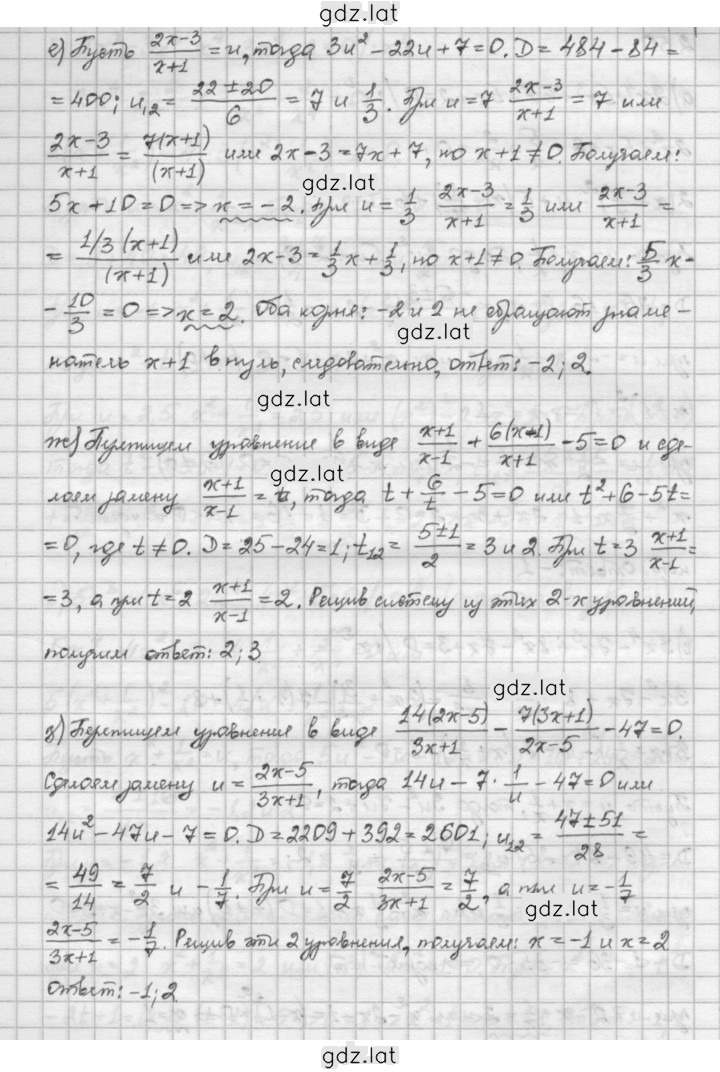 gdz.lat
е) Пусть (2x-3)/(x+1) = u, тогда 3u² - 22u + 7 = 0. D = 484 - 84 =
= 400; u₁,₂ = (22 ± 20)/6 = 7 и 1/3. При u = 7 (2x-3)/(x+1) = 7 или
(2x-3)/(x+1) = 7(x+1)/(x+1) или 2x - 3 = 7x + 7, но x + 1 ≠ 0. Получаем:
gdz.lat
5x + 10 = 0 => x = -2. При u = 1/3 (2x-3)/(x+1) = 1/3 или (2x-3)/(x+1) =
= 1/3 (x+1)/(x+1) или 2x - 3 = 1/3 x + 1/3, но x + 1 ≠ 0. Получаем: 5/3 x -
- 10/3 = 0 => x = 2. Оба корня: -2 и 2 не обращают знаме-
gdz.lat
натель x + 1 в нуль, следовательно, ответ: -2; 2.
gdz.lat
ж) Перепишем уравнение в виде (x+1)/(x-1) + 6(x-1)/(x+1) - 5 = 0 и сде-
gdz.lat
лаем замену (x+1)/(x-1) = t, тогда t + 6/t - 5 = 0 или t² + 6 - 5t =
= 0, где t ≠ 0. D = 25 - 24 = 1; t₁₂ = (5±1)/2 = 3 и 2. При t = 3 (x+1)/(x-1) =
gdz.lat
= 3, а при t = 2 (x+1)/(x-1) = 2. Решив систему из этих 2-х уравнений,
получим ответ: 2; 3
gdz.lat
з) Перепишем уравнение в виде 14(2x-5)/(3x+1) - 7(3x+1)/(2x-5) - 47 = 0.
Сделаем замену u = (2x-5)/(3x+1), тогда 14u - 7 · 1/u - 47 = 0 или
gdz.lat
14u² - 47u - 7 = 0. D = 2209 + 392 = 2601; u₁₂ = (47 ± 51)/28 =
= 49/14 = 7/2 и -1/7. При u = 7/2 (2x-5)/(3x+1) = 7/2, а при u = -1/7
gdz.lat
(2x-5)/(3x+1) = -1/7. Решив эти 2 уравнения, получаем: x = -1 и x = 2
Ответ: -1; 2
gdz.lat